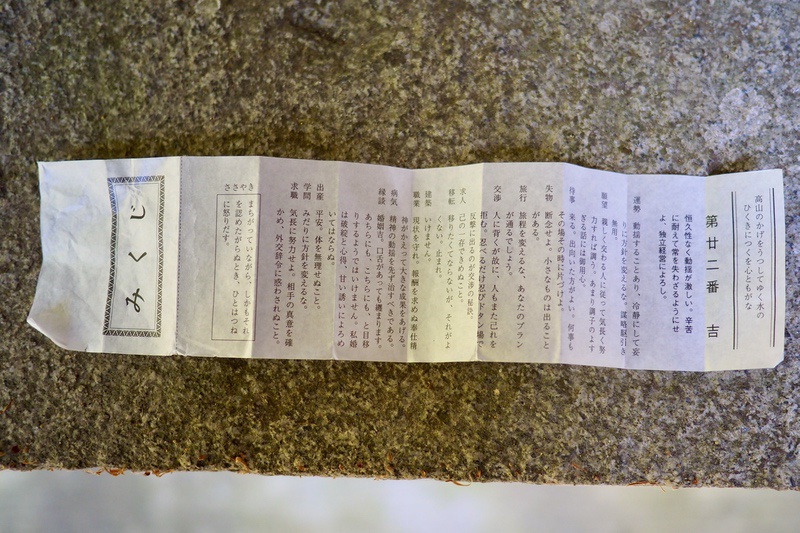 高山のかげをうつしてゆく水の
ひくきにつくを心ともがな
第廿二番 吉
恒久性なく動揺が激しい。辛苦
に耐えて常を失わざるようにせ
よ、独立経営によろし。
運勢 動揺することあり、冷静にして妄
りに方針を変えるな。謀略駆引き
無用。
願望 親しく交わる人に従って気長く努
力すれば調う。あまり調子のよす
ぎる話には御用心。
待事 来る。出向いた方がよい。何事も
その時その時に片付けよ。
失物 断念せよ。小さなものは出ること
がある。
旅行 旅程を変えるな、あなたのプラン
が通るでしょう。
交渉 人に背くが故に、人もまた己れを
拒む。忍べるだけ忍びドタン場で
反撃に出るのが交渉の秘訣。
求人 己の一存できめぬこと。
移転 移りたくてならないが、それがよ
くない、止まれ。
建築 いけません。
職業 現状を守れ。報酬を求めぬ奉仕精
神がかえって大きな成果をあげる。
病気 精神の動揺をまず治すべきである。
縁談 婚姻吉。口舌があっても纏まります。
あちらにも、こちらにも、と目移
りするようではいけません。私婚
は破綻と心得、甘い誘いによろめ
いてはならぬ。
出産 平安、体を無理せぬこと。
学問 みだりに方針を変えるな。
求職 気長に努力せよ。相手の真意を確
かめ、外交辞令に惑わされぬこと。
ささやき
まちがっていながら、しかもそれ
を認めたがらぬとき、ひとはつね
に怒りだす。
みくじ